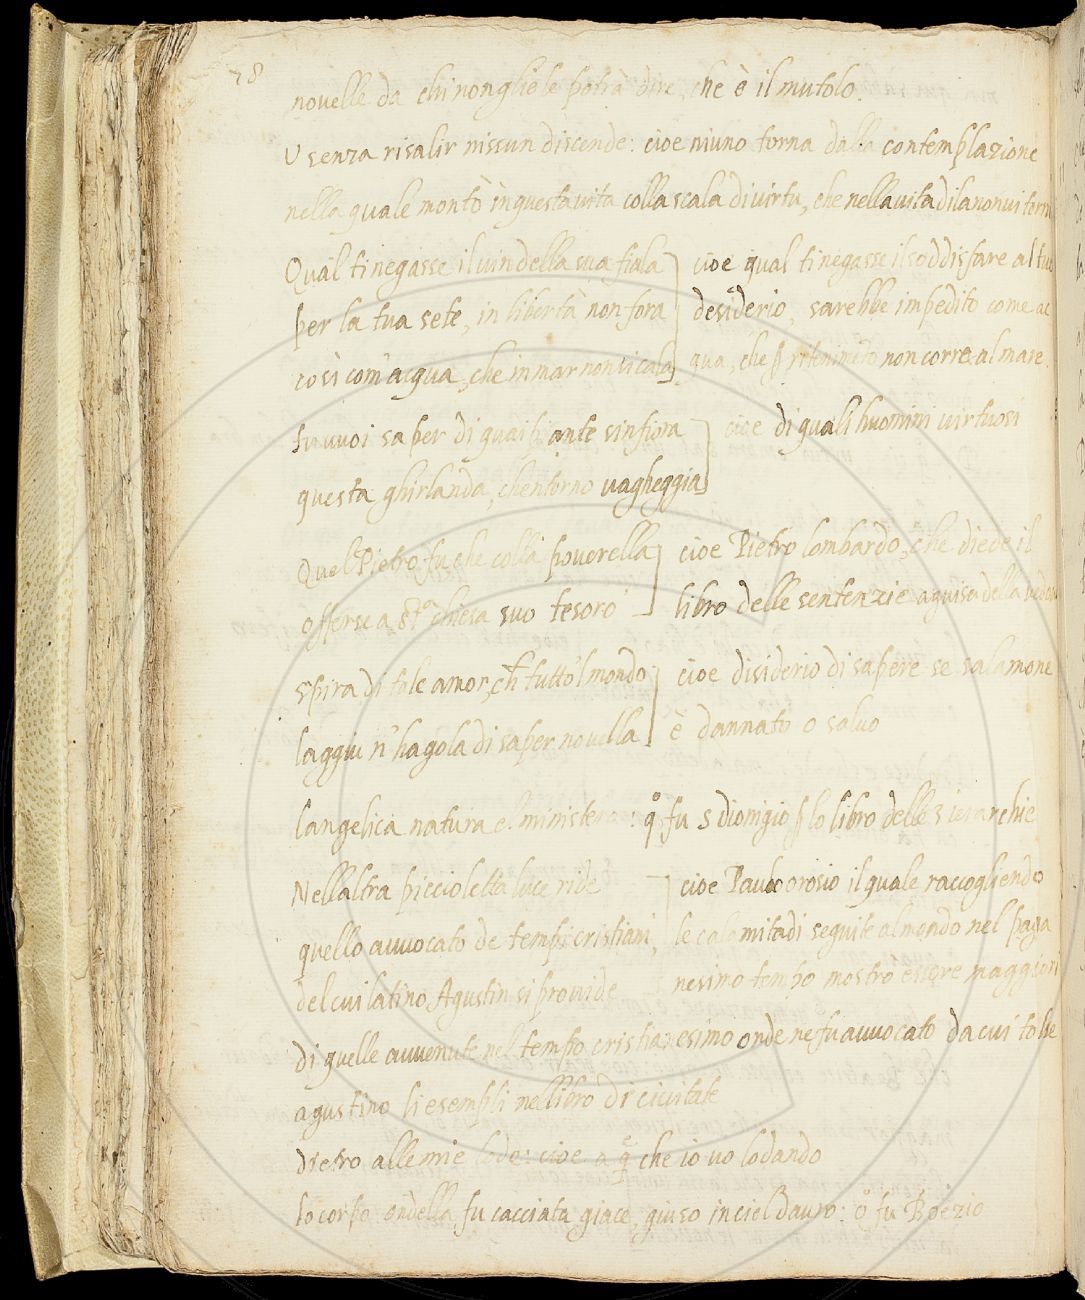 78
novelle da chi non gliele potrà dire, che è il mutolo.
U senza risalir nissun discende: cioe niuno torna dalla contemplazione
nella quale montò in questa vita colla scala di virtu, che nella vita dila non vi torni
Qual ti negasse il vin della sua fiala cioe qual ti negasse il soddisfare al tuo
per la tua sete, in libertà non fora desiderio, sarebbe impedito come ac
così com'acqua, che in mar non si cala qua, che p ritenimento non corre al mare.
tu vuoi saper di quai piante s'infiora cioe di quali huomini virtuosi
questa ghirlanda, che'ntorno vagheggia
Quel Pietro fu che colla poverella cioe Pietro lombardo, che diede il
offerse a Sta chiesa suo tesoro libro delle sentenzie a guisa della vedova
spira di tale amor, ch tutto'l mondo cioe disiderio di sapere se salamone
laggiu n'ha gola di saper novella è dannato o salvo
langelica natura e'l ministero: qo fu S dionigio p lo libro delle 3 ierarchie
Nell'altra piccioletta luce ride cioe Paulo orosio il quale raccogliendo
quello avvocato de tempi cristiani, le calamitadi seguite al mondo nel paga
del cui latino Agustin si provide nesimo tempo mostrò essere maggiori
di quelle avvenute nel tempo cristianesimo onde ne fu avvocato da cui tolse
agustino li esempli nel libro di civitate
dietro alle mie lode: cioe a q che io vo lodando
lo corpo ondella fu cacciata giace, giuso in ciel Dauro: qo fu Boezio